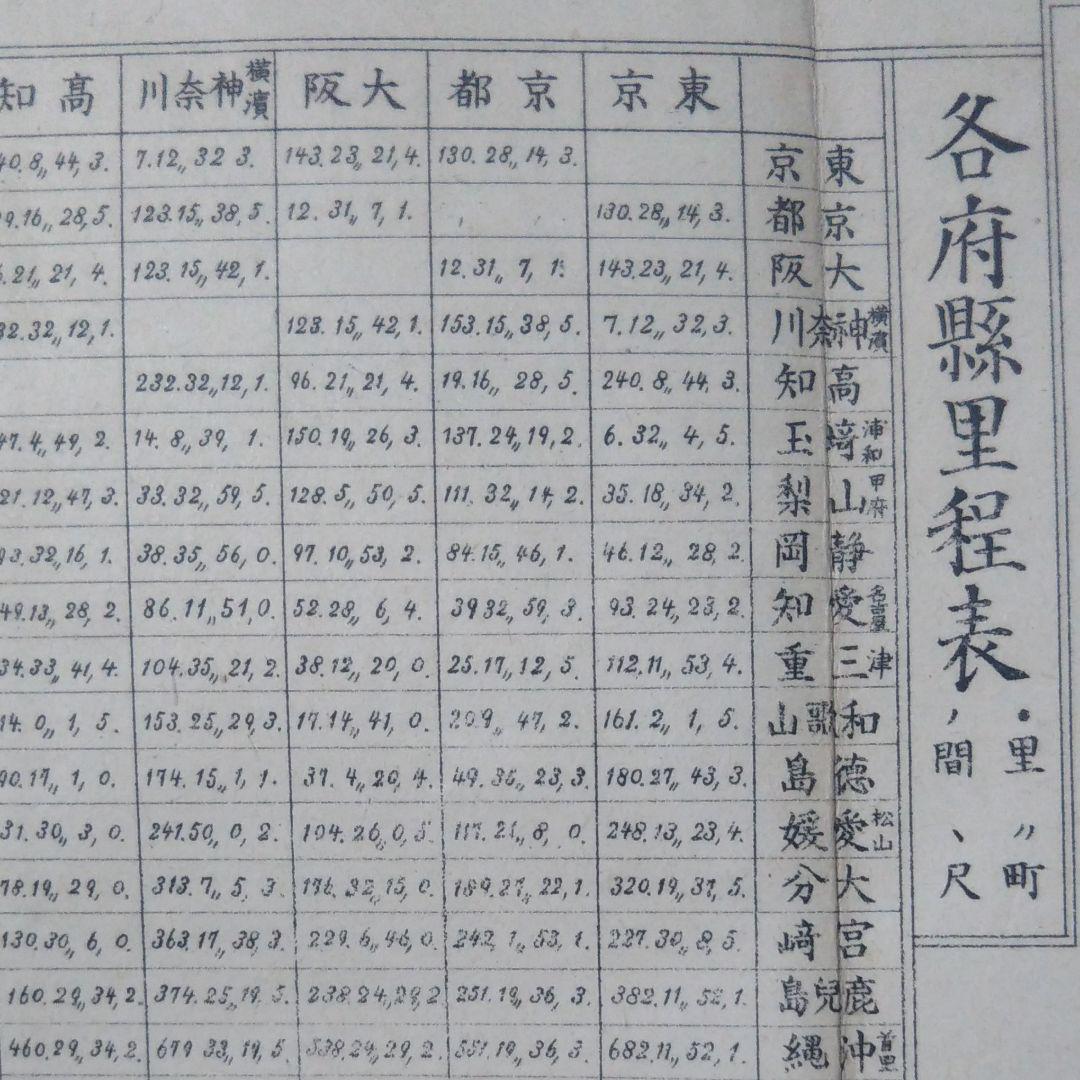 各府縣里程表
・里〃町
，間、尺
東京 京都 大阪 横濱神奈川 高知
東京 130.28〃14,3. 143.23〃21,4. 7.12〃32 3. 40.8〃44,3.
京都 130.28〃14,3. 12.31〃7,1. 123.15〃38,5. 9.16〃28,5.
大阪 143.23〃21,4. 12.31〃7,1. 123.15〃42,1. 21〃21,4.
横濱神奈川 7.12〃32,3. 153.15〃38,5. 123.15〃42,1. 32.32〃12,1.
高知 240.8〃44,3. 19.16〃28,5. 96.21〃21,4. 232.32〃12,1.
浦和埼玉 6.32〃4,5. 137.24〃19,2. 150.19〃26,3. 14.8〃39,1. 47.4〃49,2.
甲府山梨 35.18〃34,2. 111.32〃14,2. 128.5〃50,5. 33.32〃59,5. 21.12〃47,3.
静岡 46.12〃28,2. 84.15〃46,1. 97.10〃53,2. 38.35〃56,0. 93.32〃16,1.
名古屋愛知 93.24〃23,2. 39 32〃59,3. 52.28〃6,4. 86.11〃51,0. 49.13〃28,2.
津三重 112.11〃53,4. 25.17〃12,5. 38.12〃20,0. 104.35〃21,2. 34.33〃41,4.
和歌山 161.2〃1,5. 20.9〃47,2. 17.14〃41,0. 153.25〃29,3. 14.0〃1,5.
徳島 180.27〃43,3. 49.36〃23,3. 37.4〃20,4. 174.15〃1,1. 90.17〃1,0.
松山愛媛 248.13〃23,4. 117.21〃8,0. 104.26〃0,5. 241.50,0,2. 31.30〃3,0.
大分 320.19〃37,5. 189.27〃22,1. 176.32〃15,0. 313.7〃5,3. 78.19〃29,0.
宮崎 227.30〃8,5. 242.1〃53,1. 229.6〃46,0. 363.17〃38,3. 130.30〃6,0.
鹿兒島 382.11〃52,1. 251.19〃36,3. 238.24〃29,2. 374.25〃19,5. 160.29〃34,2.
首里沖縄 682.11〃52,1. 551.19〃36,3. 538.24〃29,2. 679 33〃19,5. 460.29〃34,2.